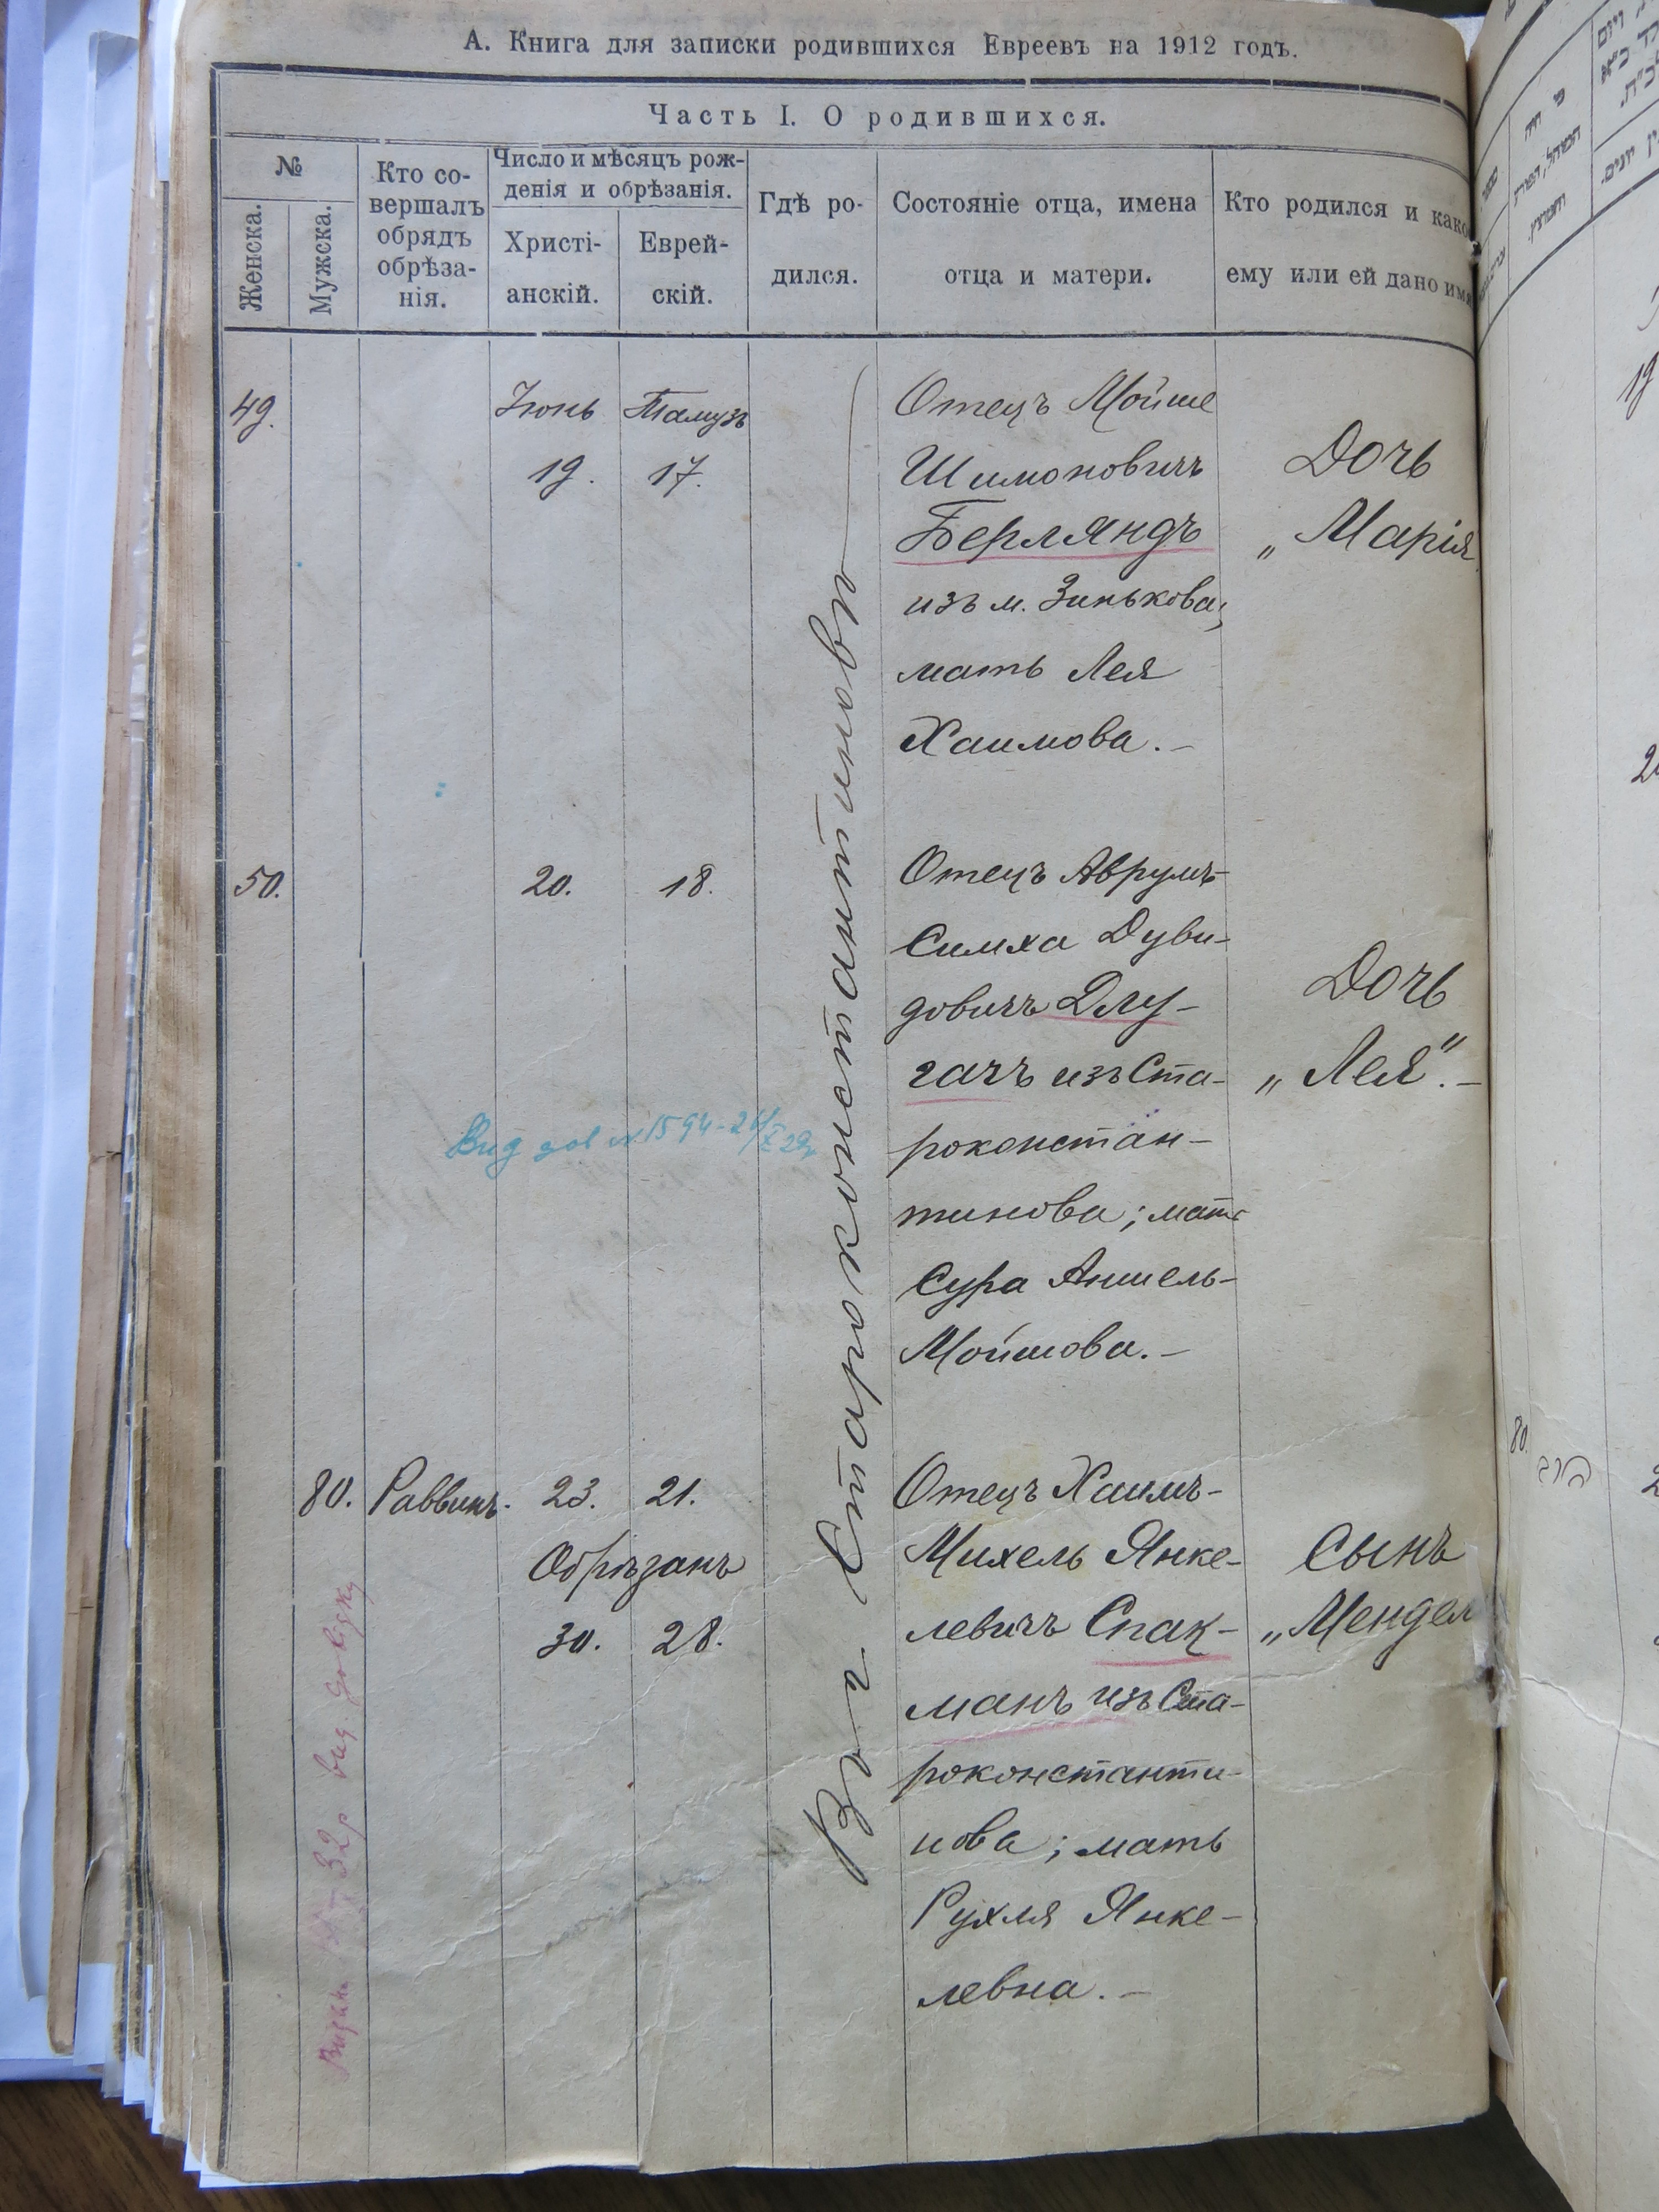 А. Книга для записки родившихся Евреевъ на 1912 годъ.
Часть I. О родившихся.
№
Женска.
Мужска.
Кто со-
вершалъ
обрядъ
обрѣза-
нія.
Число и мѣсяцъ рож-
денія и обрѣзанія.
Христі-
анскій.
Еврей-
скій.
Гдѣ ро-
дился.
Состояніе отца, имена
отца и матери.
Кто родился и како
ему или ей дано имя
Въ г. Староконстантиновѣ
49.
Іюнь Тамузъ
19. 17.
Отецъ Мойше
Шимоновичъ
Берляндъ
изъ м. Зинькова;
мать Лея
Хаимова. –
Дочь
„Марія
50.
20. 18.
Отецъ Аврумъ-
Симха Дуви-
довичъ Длу-
гачъ изъ Ста-
роконстан-
тинова; мать
Сура Аншель-
Мойшова. –
Дочь
„Лея“. –
Вид 1594
80. Раввинъ. 23. 21.
Обрѣзанъ
30. 28.
Отецъ Хаимъ-
Михель Янке-
левичъ Спак-
манъ изъ Ста-
роконстанти-
нова; мать
Рухля Янке-
левна. –
Сынъ
„Мендел
32р вид. довідку
80.